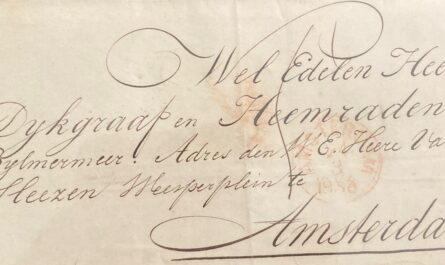 Wel Edelen Hee
Dykgraaf en Heemraden
Bylmermeer. Adres den W. E. Heere Va
Heezen Weesperplein te
Amsterda